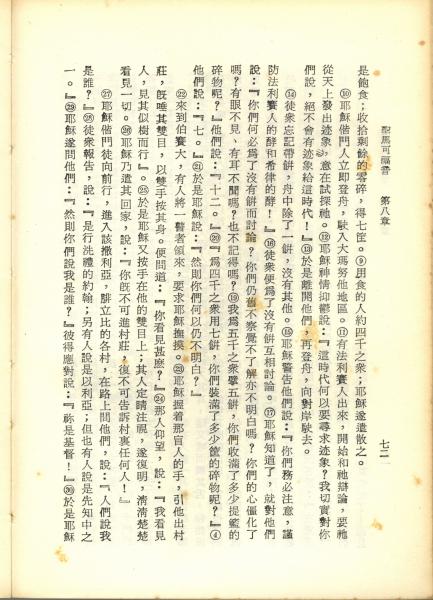 聖馬可福音　第八章
七二
是飽食；收拾剩餘的零碎，得七筐。⑨用食的人約四千之衆；耶穌遂遣散之。
⑩耶穌偕門人立即登舟，駛入大瑪努他地區。⑪有法利賽人出來，開始和祂辯論，要祂
從天上發出迹象，意在試探祂。⑫耶穌神情抑鬱說：『這時代何以要尋求迹象？我切實對你
們說，絕不會有迹象給這時代！』⑬於是離開他們，再登舟，向對岸駛去。
⑭徒衆忘記帶餅，舟中除了一餅，沒有其他。⑮耶穌警告他們說：『你們務必注意，謹
防法利賽人的酵和希律的酵！』⑯徒衆便爲了沒有餅互相討論。⑰耶穌知道了，就對他們
說：『你們何必爲了沒有餅而討論？你們仍舊不察覺不了解亦不明白嗎？你們的心僵化了
嗎？有眼不見、有耳不聞嗎？也不記得嗎？⑲我爲五千之衆擘五餅，你們收滿了多少提籃的
碎物呢？』他們說：『十二。』⑳『爲四千之衆用七餅，你們裝滿了多少筐的碎物呢？』④
他們說：『七。』㉑於是耶穌說：『然則你們何以仍不明白？』
㉒來到伯賽大，有人將一瞽者領來，要求耶穌撫摸。㉓耶穌握着那盲人的手，引他出村
莊，旣唾其雙目，以雙手按其身。便問道：『你看見甚麽？』㉔那人仰望，說：『我看見
人，見其似樹而行』。㉕於是耶穌又按手在他的雙目上；其人定睛注視，遂復明，淸淸楚楚
看見一切。㉖耶穌乃遣其回家，說：『你旣不可進村莊，復不可告訴村裏任何人！』
㉗耶穌偕門徒向前行，進入該撒利亞，腓立比的各村，在路上問他們，說：『人們說我
是誰？』㉘徒衆報告，說：『是行洗禮的約翰；另有人說是以利亞；但也有人說是先知中之
一。』㉙耶穌遂問他們：『然則你們說我是誰？』彼得應對說：『祢是基督！』㉚於是耶穌